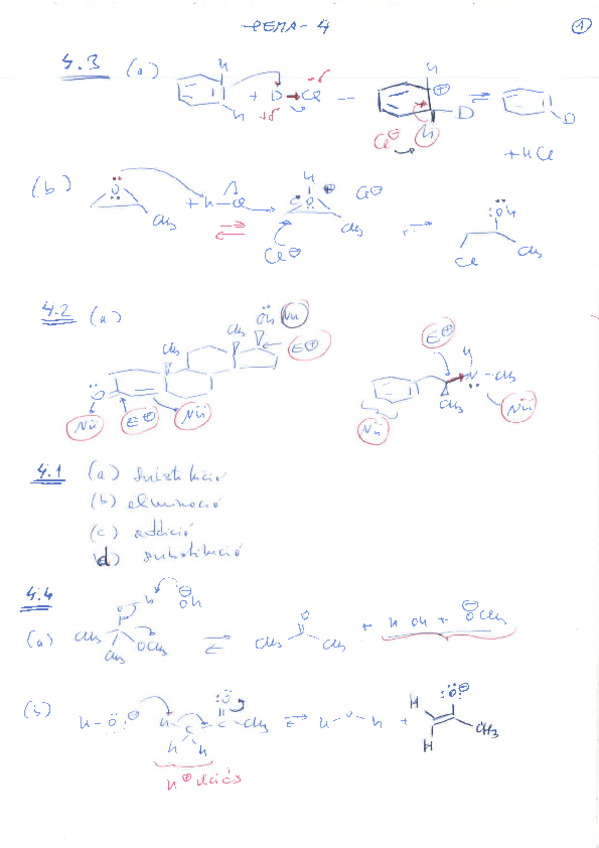 TEMA - 4
1
4.3 (a)
H
H
+ D Cl
-δ
+δ
H
⊕
D
H
Cl⊖
D
+ HCl
(b)
O
CH3
+ H-Cl
H
O
⊕
CH3
Cl⊖
Cl⊖
OH
CH3
Cl
4.2 (a)
CH3
CH3
OH
Nü
E⊕
O
Nü
E⊕
Nü
E⊕
H
N - CH3
CH3
Nü
Nü
4.1 (a) substitució
(b) eliminació
(c) addició
(d) substitució
4.4
(a)
O H
⊖OH
CH3
CH3
OCH3
O
CH3
CH3
+ HOH + ⊖OCH3
(b)
H-O⊖
H
C
H
H
O
C - CH3
H O H
+
H
H
O⊖
CH3
H⊕ àcids